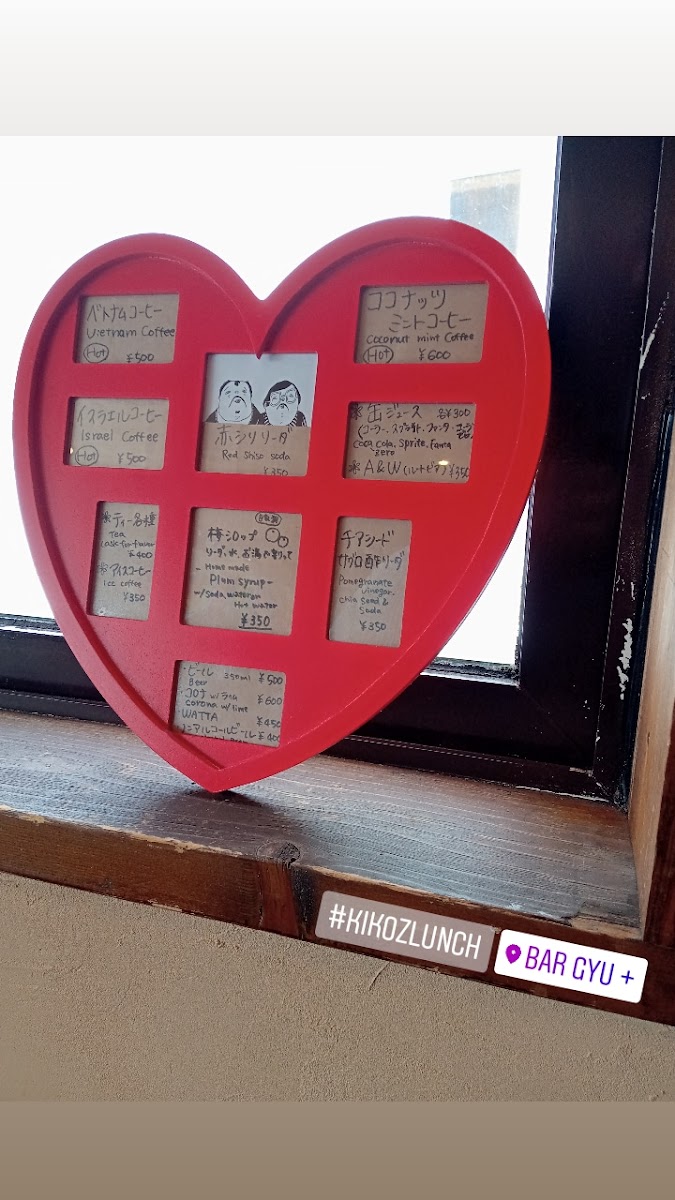 ベトナムコーヒー
Vietnam Coffee
Hot ¥500
ココナッツ
ミントコーヒー
Coconut mint Coffee
Hot ¥600
イスラエルコーヒー
Israel Coffee
Hot ¥500
赤シソソーダ
Red Shiso soda
¥350
※缶ジュース 各¥300
Coca cola, Sprite, Fanta
zero
※A&W(ルートビア)¥350
※ティー各種
Tea
¥400
※アイスコーヒー
Ice coffee
¥350
自家製
梅シロップ
ソーダ、水、お湯で割って
- Home made
Plum syrup -
w/soda, water or
Hot water
¥350
チアシード
ザクロ酢ソーダ
Pomegranate
vinegar.
chia seed &
Soda
¥350
・ビール 350ml ¥500
Beer
・コロナ w/ライム ¥600
corona w/lime
・WATTA ¥450
・ノンアルコールビール ¥400
#KIKOZLUNCH
BAR GYU +